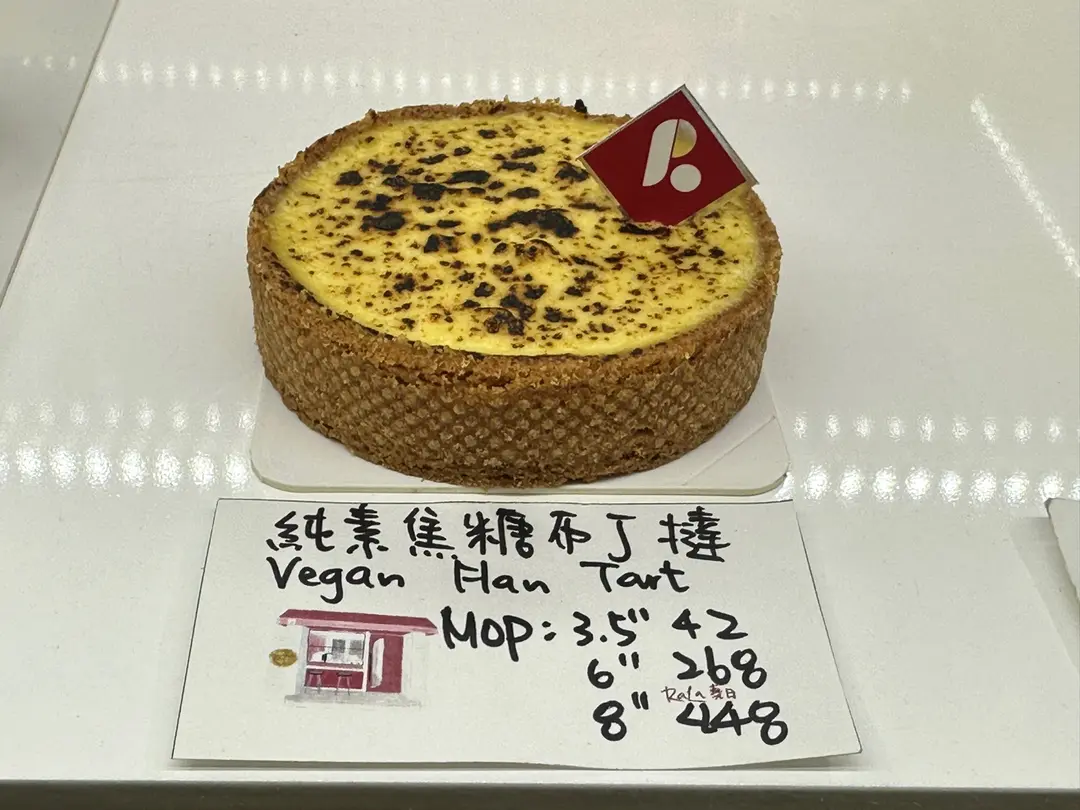 純素焦糖布丁撻
Vegan Flan Tart
MOP: 3.5" 42
6" 268
8" 448